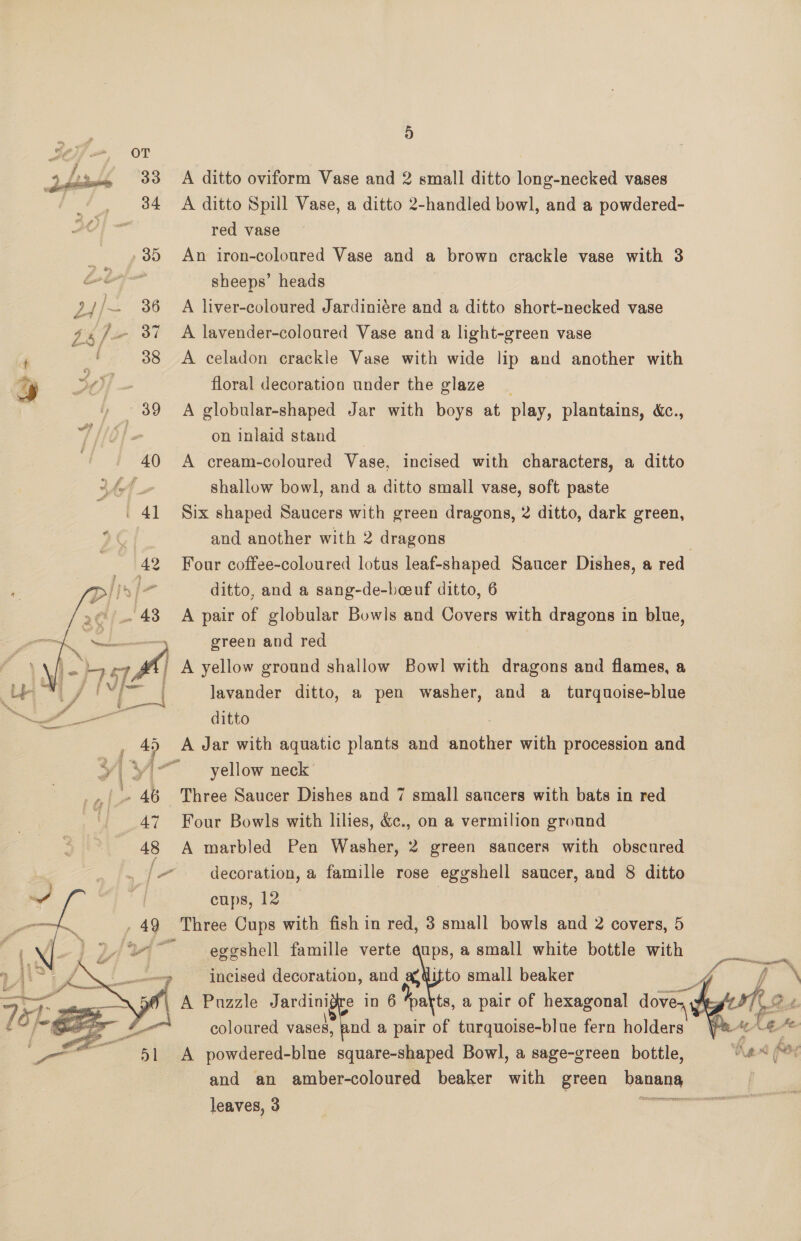 5
LOT
33 A ditto oviform Vase and 2 small ditto long-necked vases
34 A ditto Spill Vase, a ditto 2-handled bowl, and a powdered-
red vase
35 An iron-coloured Vase and a brown crackle vase with 3
sheeps' heads
21/- 36 A liver-coloured Jardiniére and a ditto short-necked vase
37 A lavender-coloured Vase and a light-green vase
38 A celadon crackle Vase with wide lip and another with
floral decoration under the glaze
39 A globular-shaped Jar with boys at play, plantains, &c.,
on inlaid stand
40 A cream-coloured Vase, incised with characters, a ditto
shallow bowl, and a ditto small vase, soft paste
41 Six shaped Saucers with green dragons, 2 ditto, dark green,
and another with 2 dragons
42 Four coffee-coloured lotus leaf-shaped Saucer Dishes, a red
ditto, and a sang-de-bœuf ditto, 6
43 A pair of globular Bowls and Covers with dragons in blue,
green and red
A yellow ground shallow Bowl with dragons and flames, a
lavander ditto, a pen washer, and a turquoise-blue
ditto
45 A Jar with aquatic plants and another with procession and
yellow neck
46 Three Saucer Dishes and 7 small saucers with bats in red
47 Four Bowls with lilies, &c., on a vermilion ground
48 A marbled Pen Washer, 2 green saucers with obscured
decoration, a famille rose eggshell saucer, and 8 ditto
cups, 12
49 Three Cups with fish in red, 3 small bowls and 2 covers, 5
eggshell famille verte cups, a small white bottle with
incised decoration, and a ditto small beaker
A Puzzle Jardinière in 6 parts, a pair of hexagonal dove-
coloured vases, and a pair of turquoise-blue fern holders
51 A powdered-blue square-shaped Bowl, a sage-green bottle,
and an amber-coloured beaker with green banana
leaves, 3